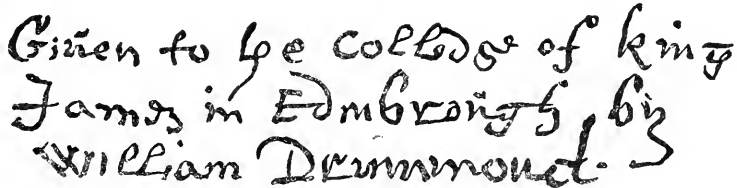 Giuen to the Colledge of king
James in Edinbrough by
William Drummond.